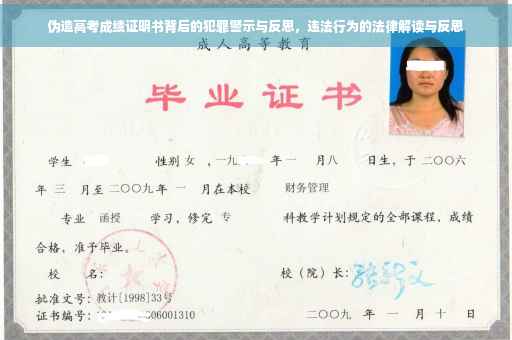 伪造高考成绩证明书背后的犯罪警示与反思，违法行为的法律解读与反思
成人高等教育
毕业证书
学生 性别 女 ，一九 年 一 月八 日生，于 二〇〇六
年 三 月至 二〇〇九 年 一 月在本校 财务管理
专业 函授 学习，修完 专 科教学计划规定的全部课程，成绩
合格，准予毕业。
校 名： 校（院）长：
批准文号：教计[1998]33号
证书编号： 06001310 二〇〇九 年 一 月 十 日